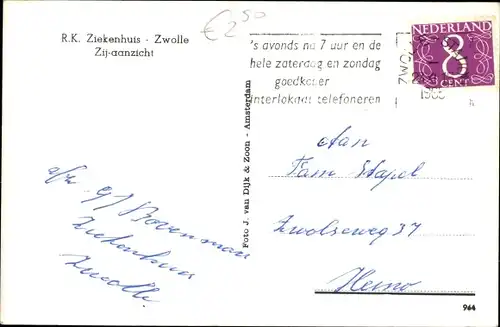 R.K. Ziekenhuis - Zwolle
Zij-aanzicht
€ 2,50
's avonds na 7 uur en de
hele zaterdag en zondag
goedkoper
interlokaal telefoneren
ZWO
NEDERLAND
8
CENT
Aan
Fam Stapel
Zwolseweg 37
Heino
afz. G J Bovenman
Ziekenhuis
Zwolle.
Foto J. van Dijk & Zoon - Amsterdam
964